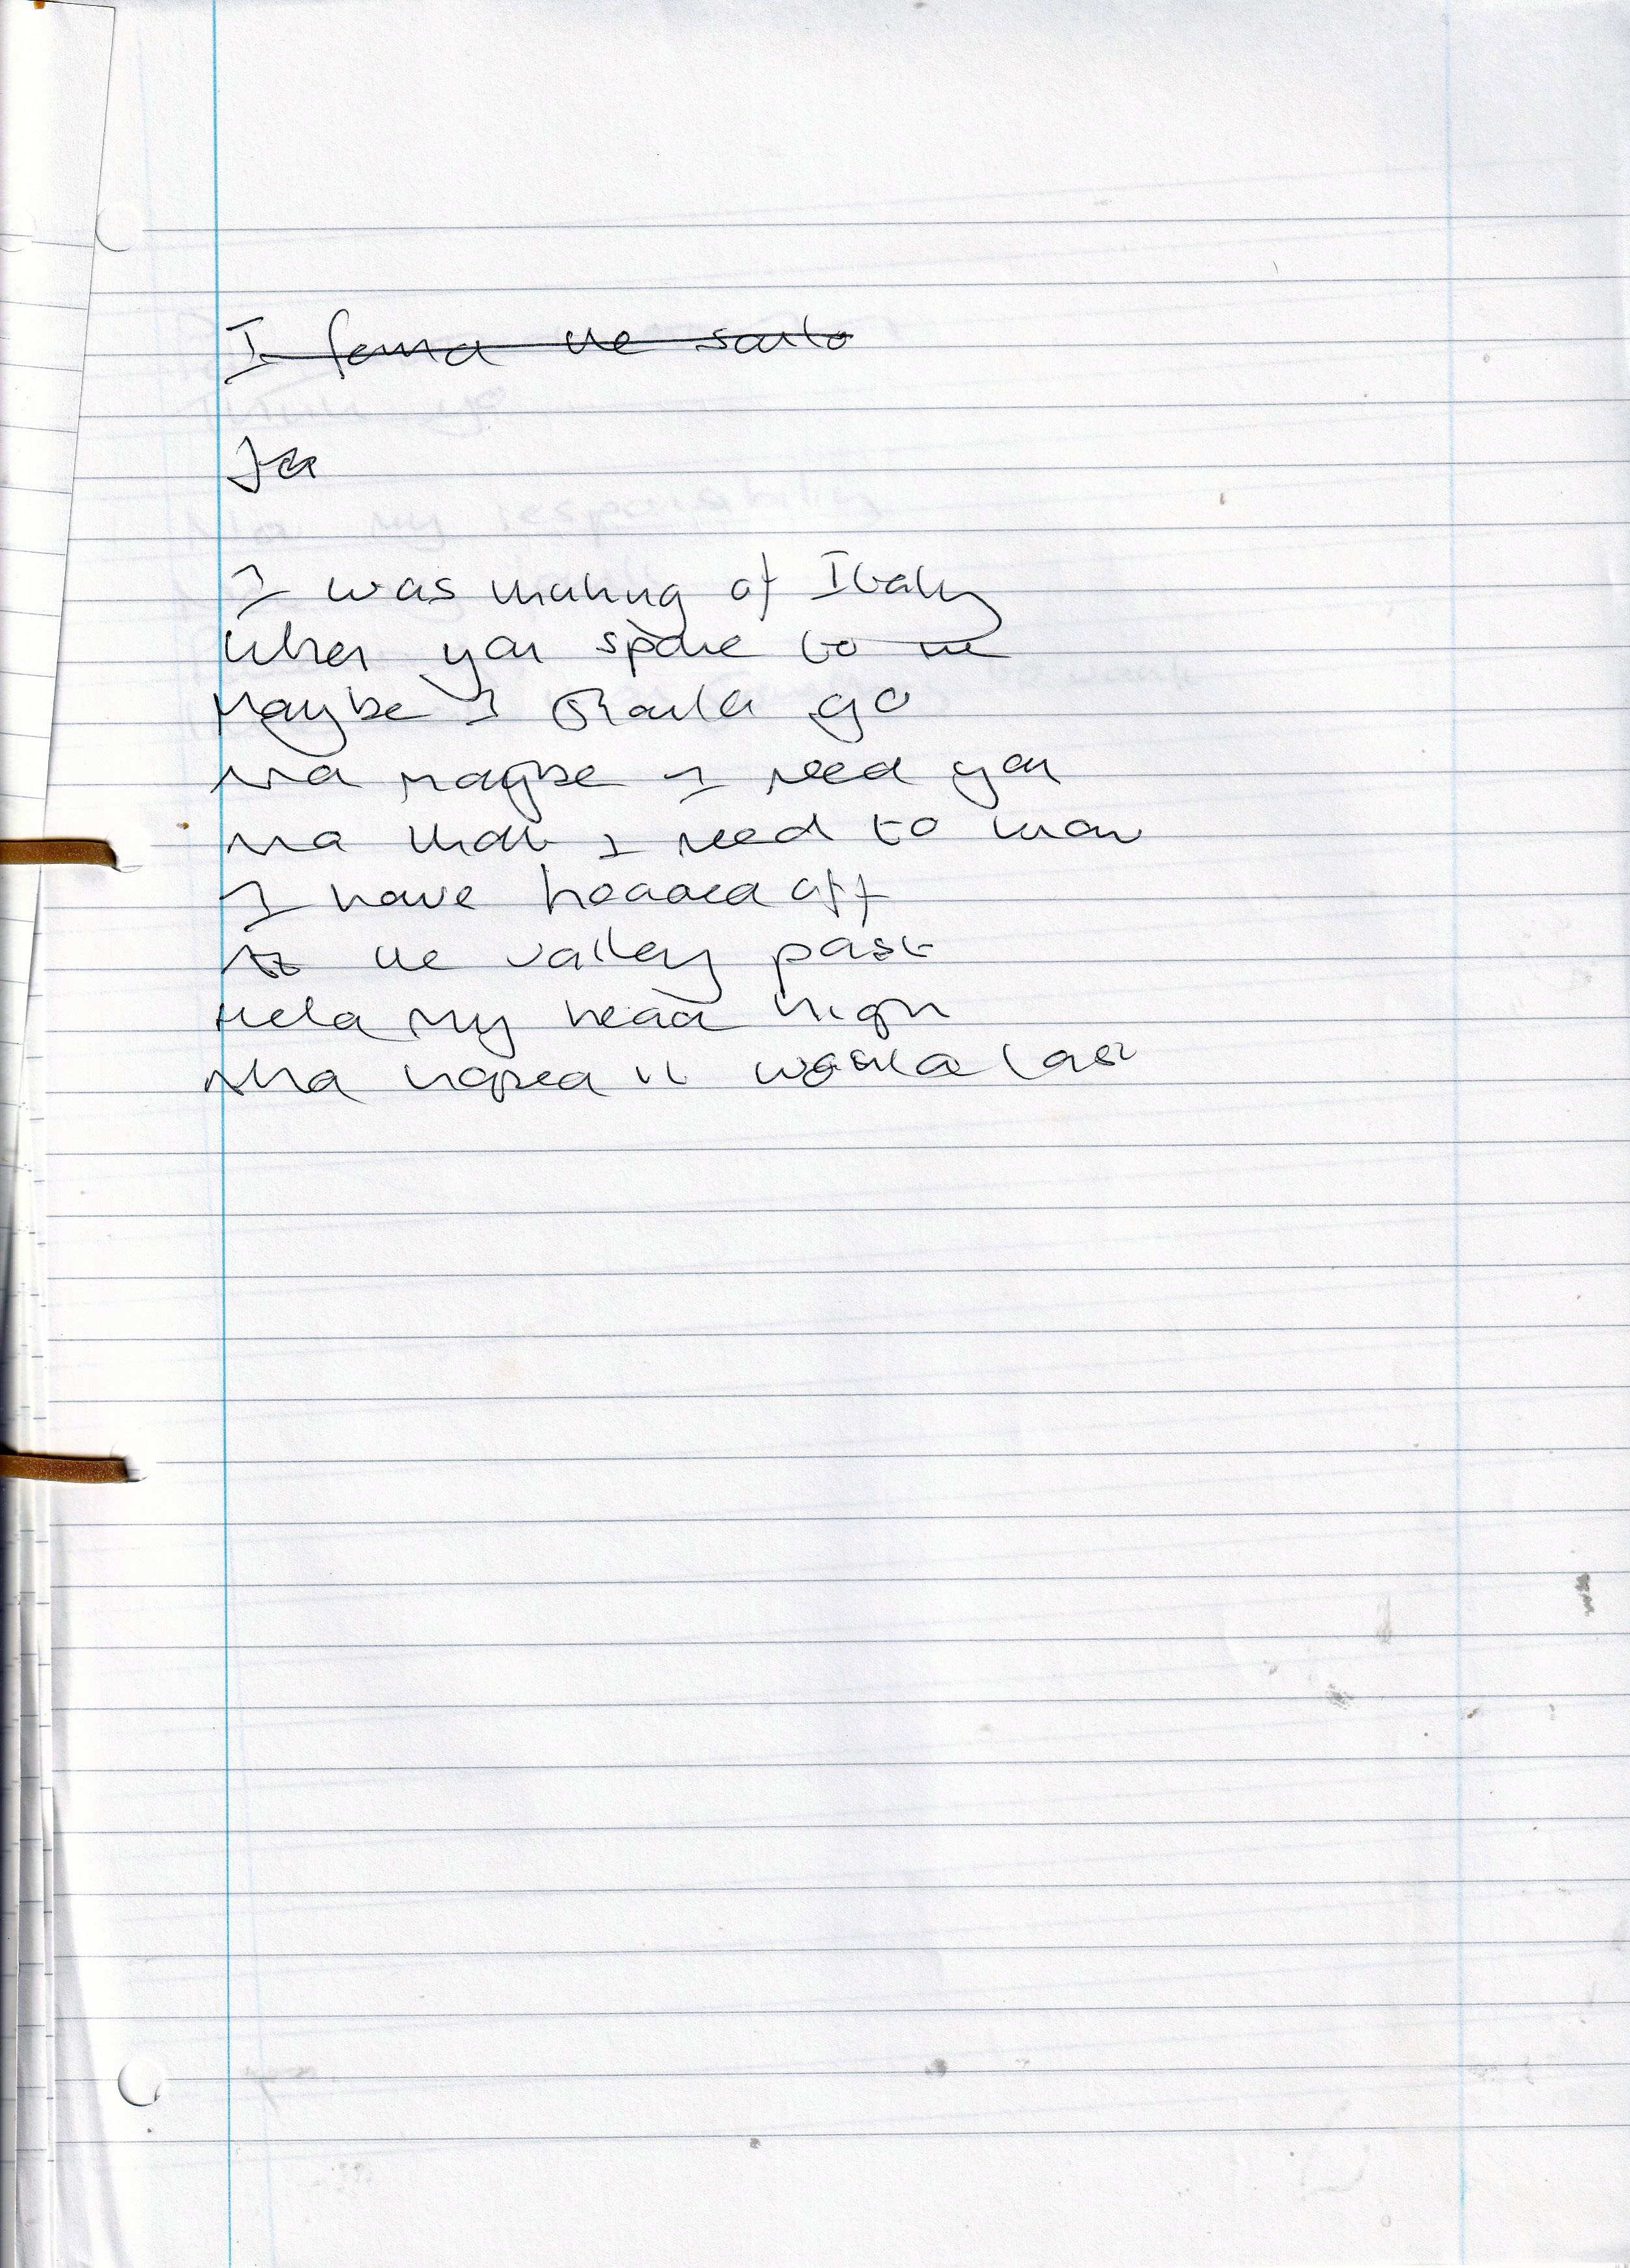 I found the
I was thinking of Italy
When you spoke to me
Maybe I should go
And maybe I need you
And that I need to know
I have headed off
As the valley past
Held my head high
And hoped it would last